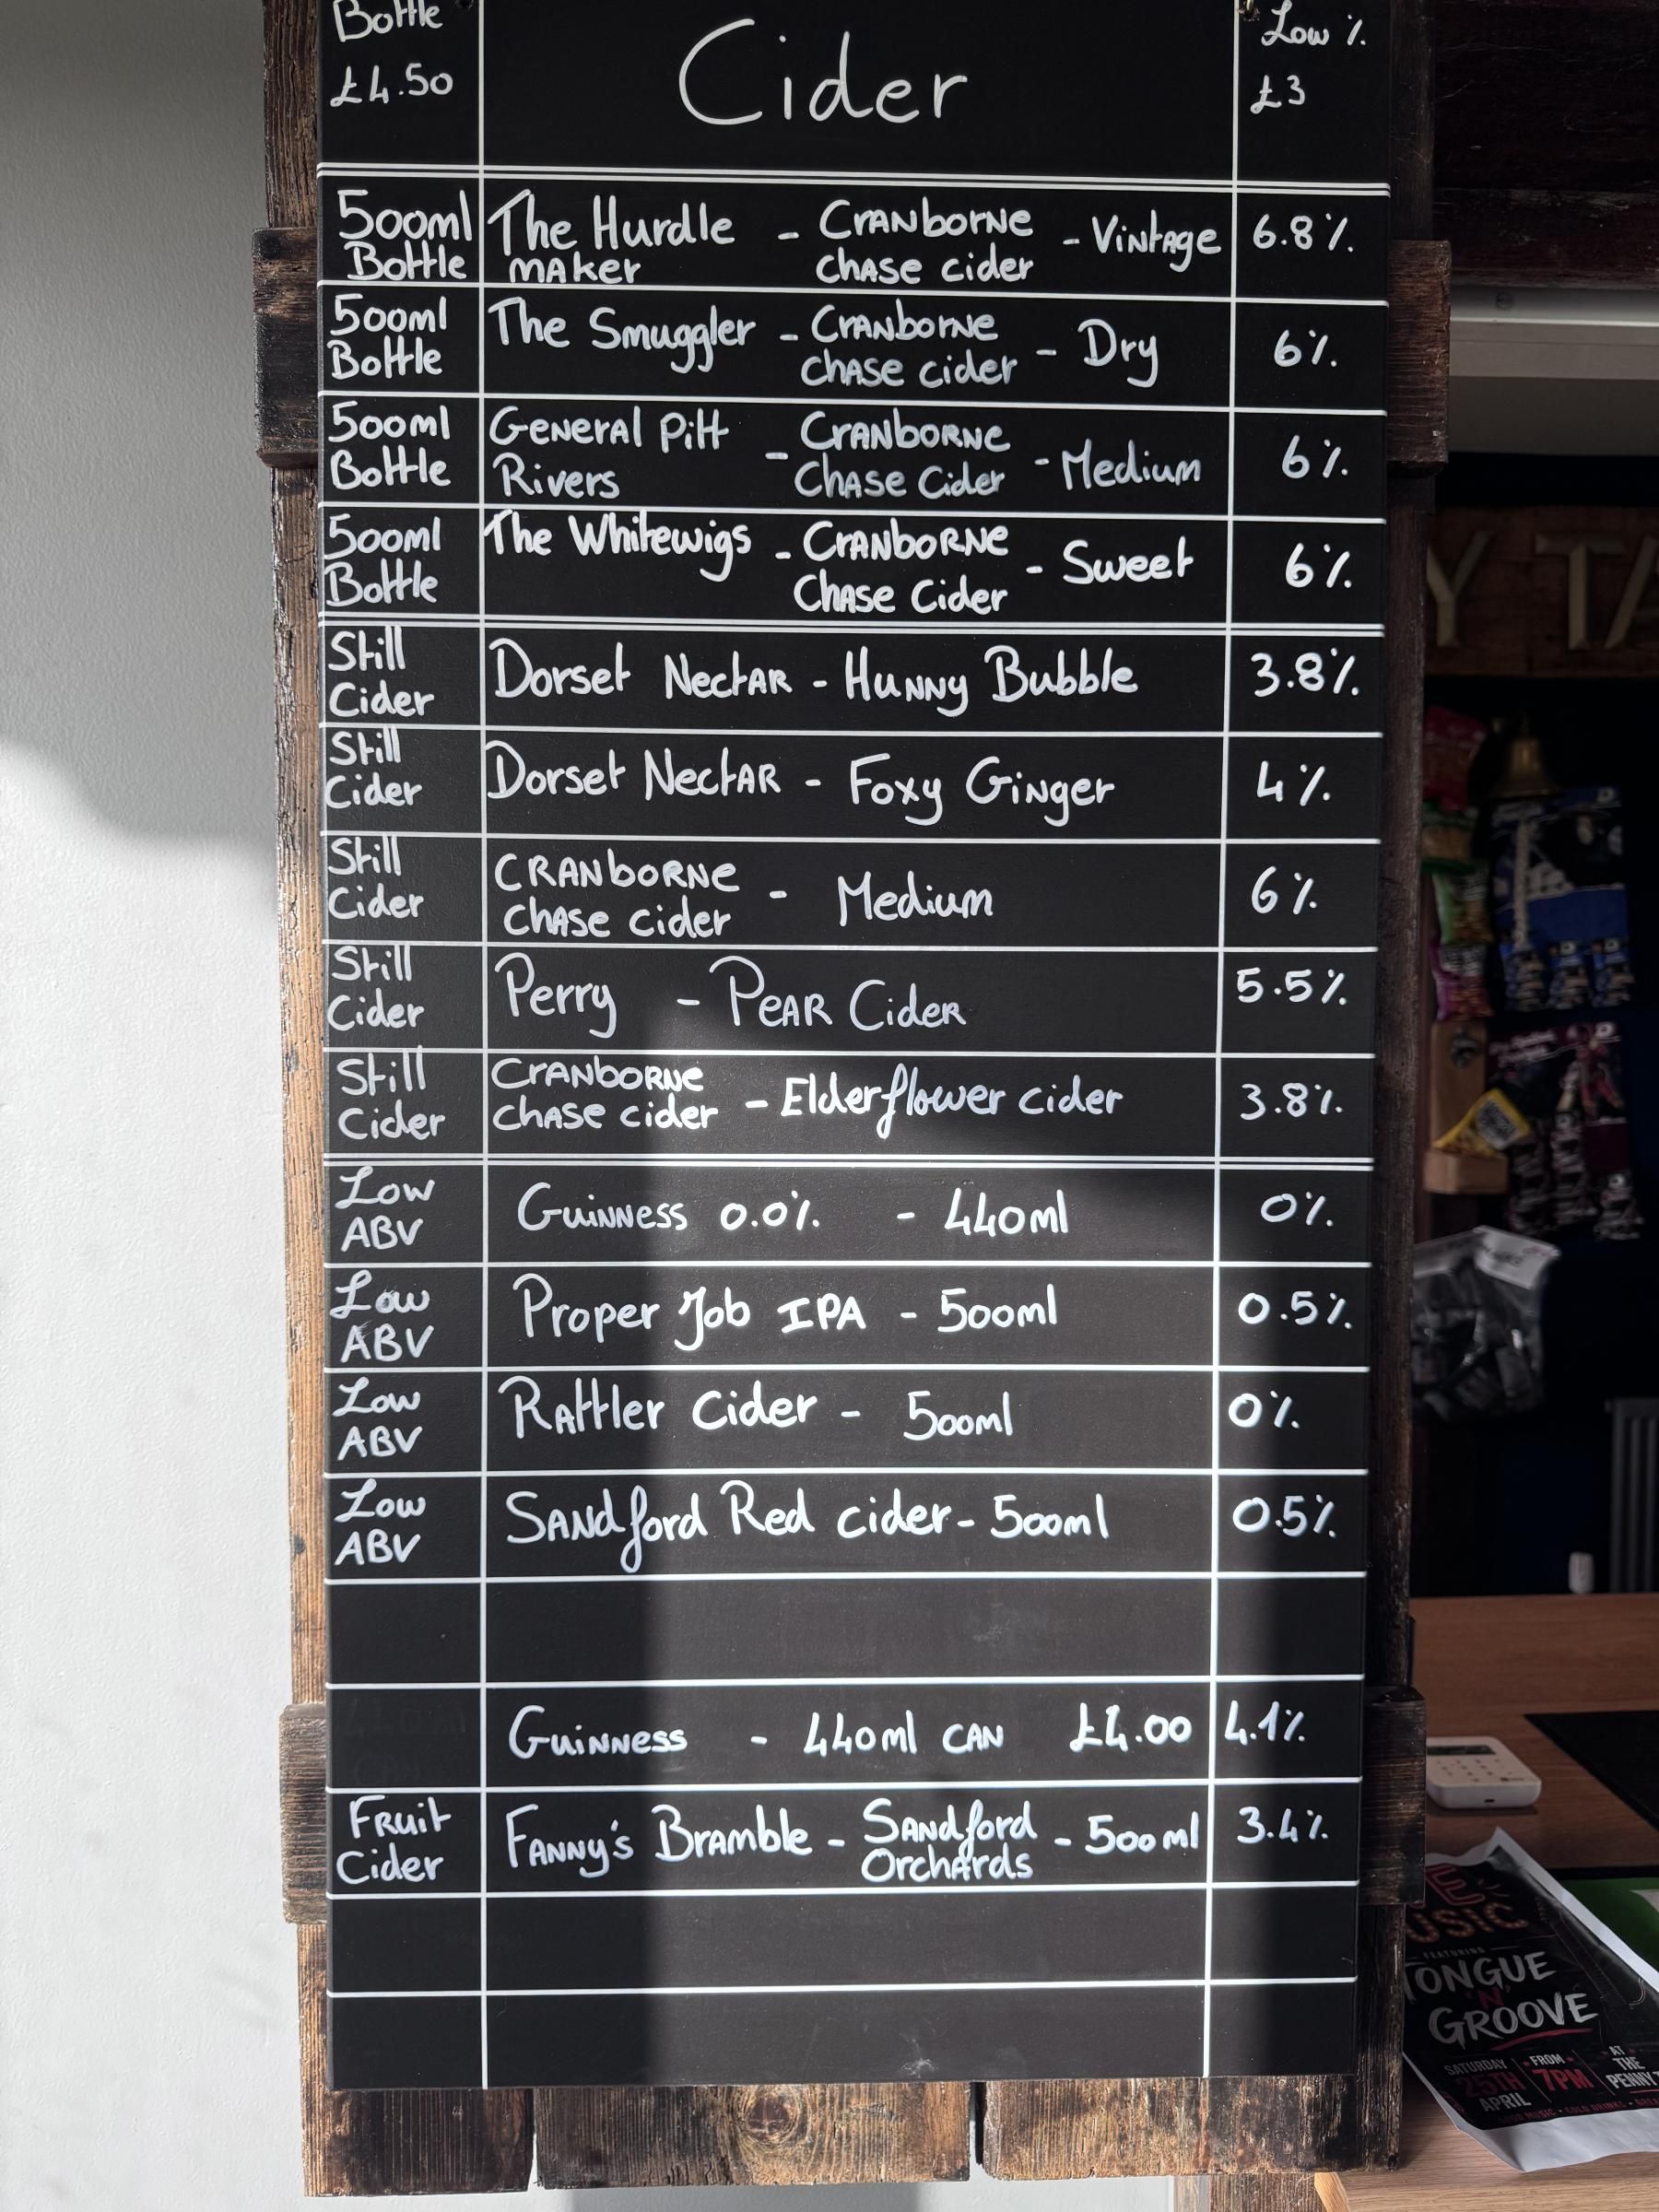 Bottle
£4.50
Cider
Low %
£3
500ml Bottle The Hurdle maker - Cranborne chase cider - Vintage 6.8%
500ml Bottle The Smuggler - Cranborne chase cider - Dry 6%
500ml Bottle General Pitt Rivers - Cranborne Chase Cider - Medium 6%
500ml Bottle The Whitewigs - Cranborne Chase Cider - Sweet 6%
Still Cider Dorset Nectar - Hunny Bubble 3.8%
Still Cider Dorset Nectar - Foxy Ginger 4%
Still Cider Cranborne chase cider - Medium 6%
Still Cider Perry - Pear Cider 5.5%
Still Cider Cranborne chase cider - Elderflower cider 3.8%
Low ABV Guinness 0.0% - 440ml 0%
Low ABV Proper Job IPA - 500ml 0.5%
Low ABV Rattler Cider - 500ml 0%
Low ABV Sandford Red cider - 500ml 0.5%
Guinness - 440ml can £4.00 4.1%
Fruit Cider Fanny's Bramble - Sandford Orchards - 500ml 3.4%
Y TA
FEATURING
TONGUE
'N'
GROOVE
SATURDAY
25TH
APRIL
FROM
7PM
AT
THE
PENNY